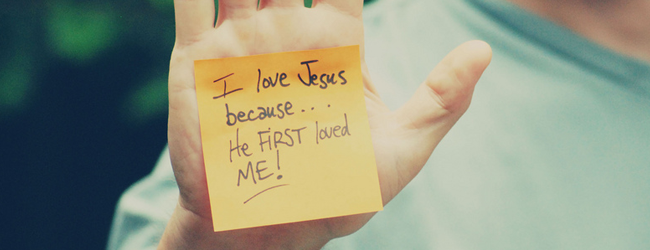 I love Jesus
because...
He FIRST loved
ME!